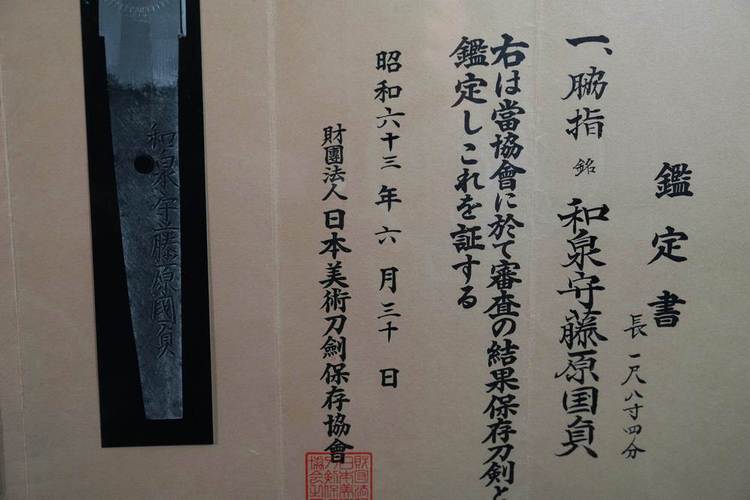 鑑定書
長 一尺八寸四分
一、脇指 銘 和泉守藤原国貞
右は當協會に於て審査の結果保存刀剣と
鑑定しこれを証する
昭和六十三年六月三十日
財團法人日本美術刀劍保存協會
和泉守藤原國貞